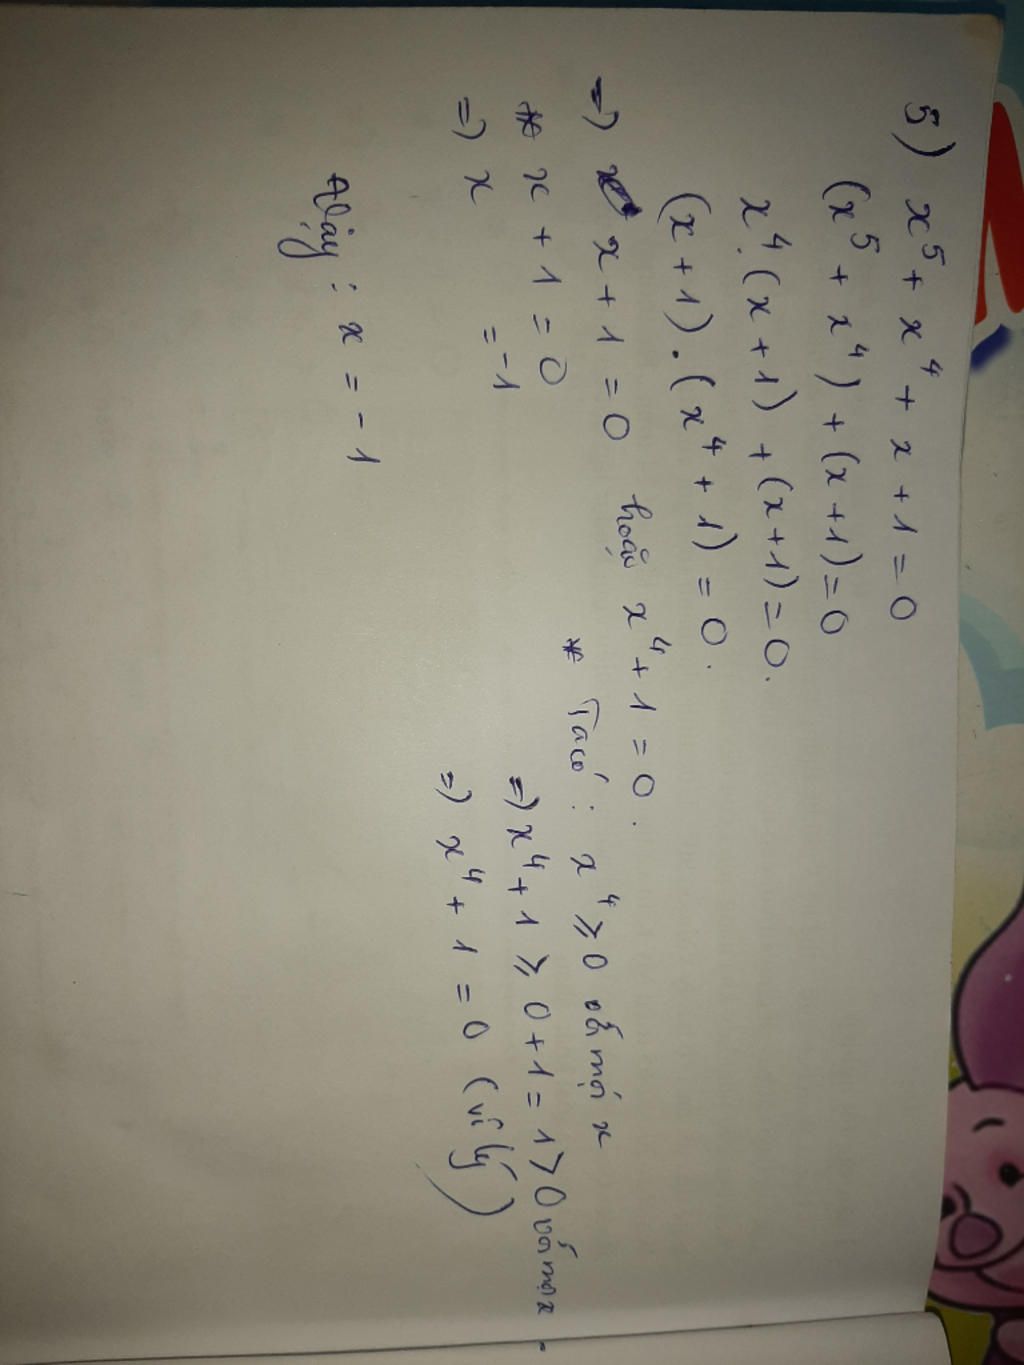 5) x⁵ + x⁴ + x + 1 = 0
(x⁵ + x⁴) + (x + 1) = 0
x⁴.(x + 1) + (x + 1) = 0.
(x + 1) . (x⁴ + 1) = 0.
=) x + 1 = 0 hoặc x⁴ + 1 = 0.
* x + 1 = 0
=) x = -1
* Ta có : x⁴ ≥ 0 với mọi x
=) x⁴ + 1 ≥ 0 + 1 = 1 > 0 với mọi x
=) x⁴ + 1 = 0 (vô lý)
Vậy : x = -1